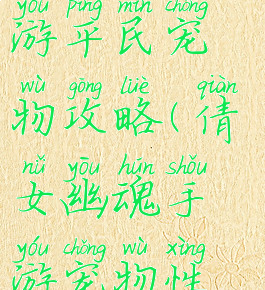 yóu píng mín chǒng
游平民宠
wù gōng lüè qiàn
物攻略(倩
nǚ yōu hún shǒu
女幽魂手
yóu chǒng wù xìng
游宠物性